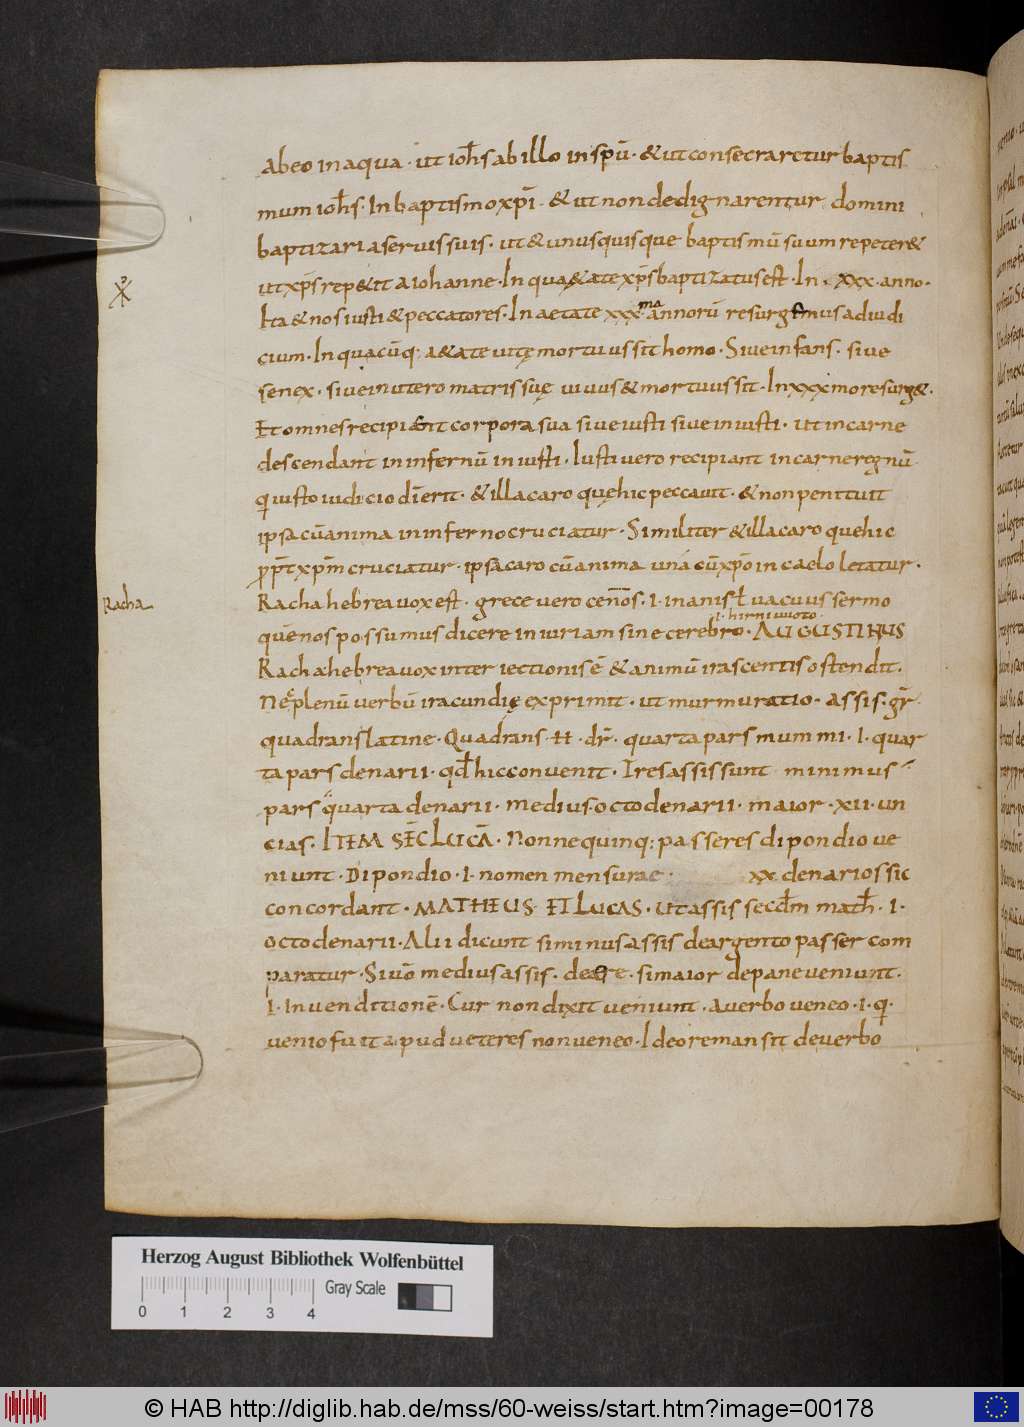 ab eo in aqua · ut ioħs ab illo in spū · & ut consecraretur baptis
mum ioħs · In baptismo xp̄i · & ut non dedignarentur domini
baptizari a servis suis · ut & unusquisque baptismū suum repeter&
ut xp̄s rep&it a iohanne · In qua &ate xp̄s baptizatus est · In · xxx · anno ·
Ita & nos iusti & peccatores · In aetate xxx ma annorū resurgemus ad iudi
cium · In quacūq: a&ate vitę mortuus sit homo · Sive infans · sive
senex · sive in utero matris suę vivus & mortuus sit · In xxx mo resurg& ·
Et omnes recipient corpora sua sive iusti sive iniusti · ut in carne
descendant in infernū iniusti · Iusti vero recipiant in carne regnū
q iusto iudicio dīerit · & illa caro quę hic peccavit · & non penituit
ipsa cū anima in inferno cruciatur · Similiter & illa caro que hic
pp̄t xp̄m cruciatur · ipsa caro cū anima una cū xp̄o in caelo letatur ·
Racha
Racha hebrea vox est · grece vero cenōs · I · inanis ł vacuus sermo
· I · hirni vuoto ·
que nos possumus dicere iniuriam sine cerebro · AUGUSTINUS
Racha hebrea vox interiectionis ē & animū irascentis ostendit ·
Nec plenū verbū iracundię exprimit · ut murmuratio · assis · gr̄ ·
quadrans latine · Quadrans · H · dr̄ · quarta pars mummi · I · quar
ta pars denarii · qđ hic convenit · Tres assis sunt minimus
pars quarta denarii · medius octo denarii · maior · XII · un
cias · ITEM SEC LUCĀ · Nonne quinq: passeres dipondio ve
niunt · Dipondio · I · nomen mensurae · xx denarios sic
concordant · MATHEUS ET LUCAS · ut assis secdm matħ · I ·
octo denarii · Alii dicunt si minus assis de argento passer com
paratur · Si vō medius assis · de aere · si maior de pane veniunt ·
I · In venditionē · Cur non dixit veniunt · a verbo veneo · I · q ·
venio fuit apud veteres non veneo · Ideo remansit de verbo
Herzog August Bibliothek Wolfenbüttel
Gray Scale
0 1 2 3 4
© HAB http://diglib.hab.de/mss/60-weiss/start.htm?image=00178